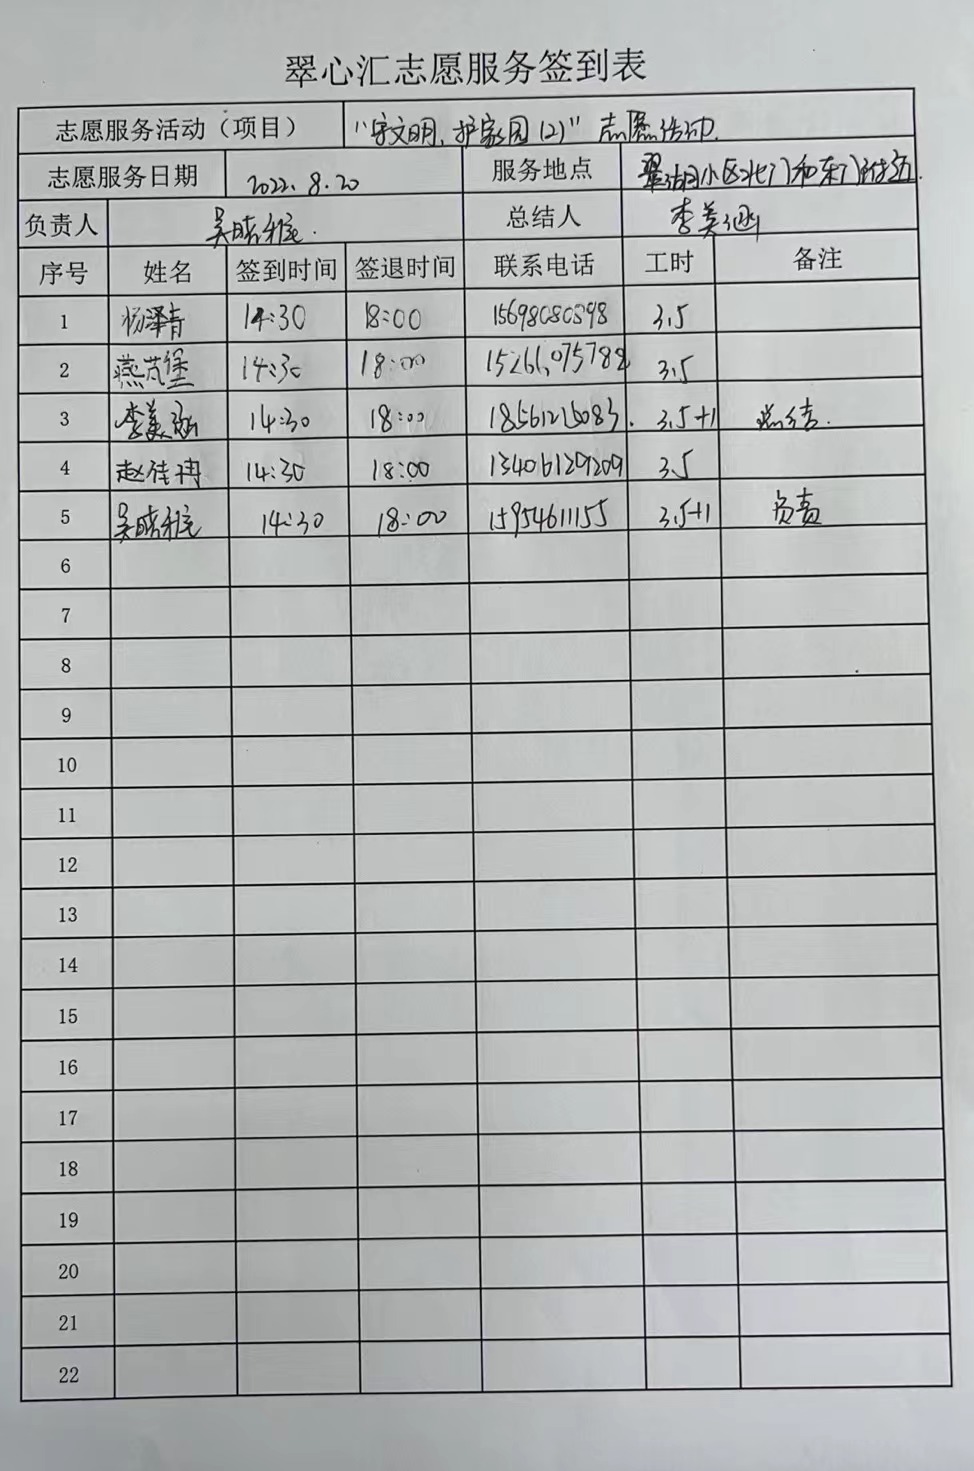 翠心汇志愿服务签到表
志愿服务活动（项目） “守文明，护家园（2）”志愿活动.
志愿服务日期 2022.8.20 服务地点 翠湖小区北门和东门附近.
负责人 总结人 李美涵
序号 姓名 签到时间 签退时间 联系电话 工时 备注
1 杨泽青 14:30 18:00 15698080898 3.5
2 14:30 18:00 15266075788 3.5
3 李美涵 14:30 18:00 18561215083. 3.5+1 总结.
4 赵佳冉 14:30 18:00 13406129209 3.5
5 14:30 18:00 15954611155 3.5+1 负责
6
7
8
9
10
11
12
13
14
15
16
17
18
19
20
21
22